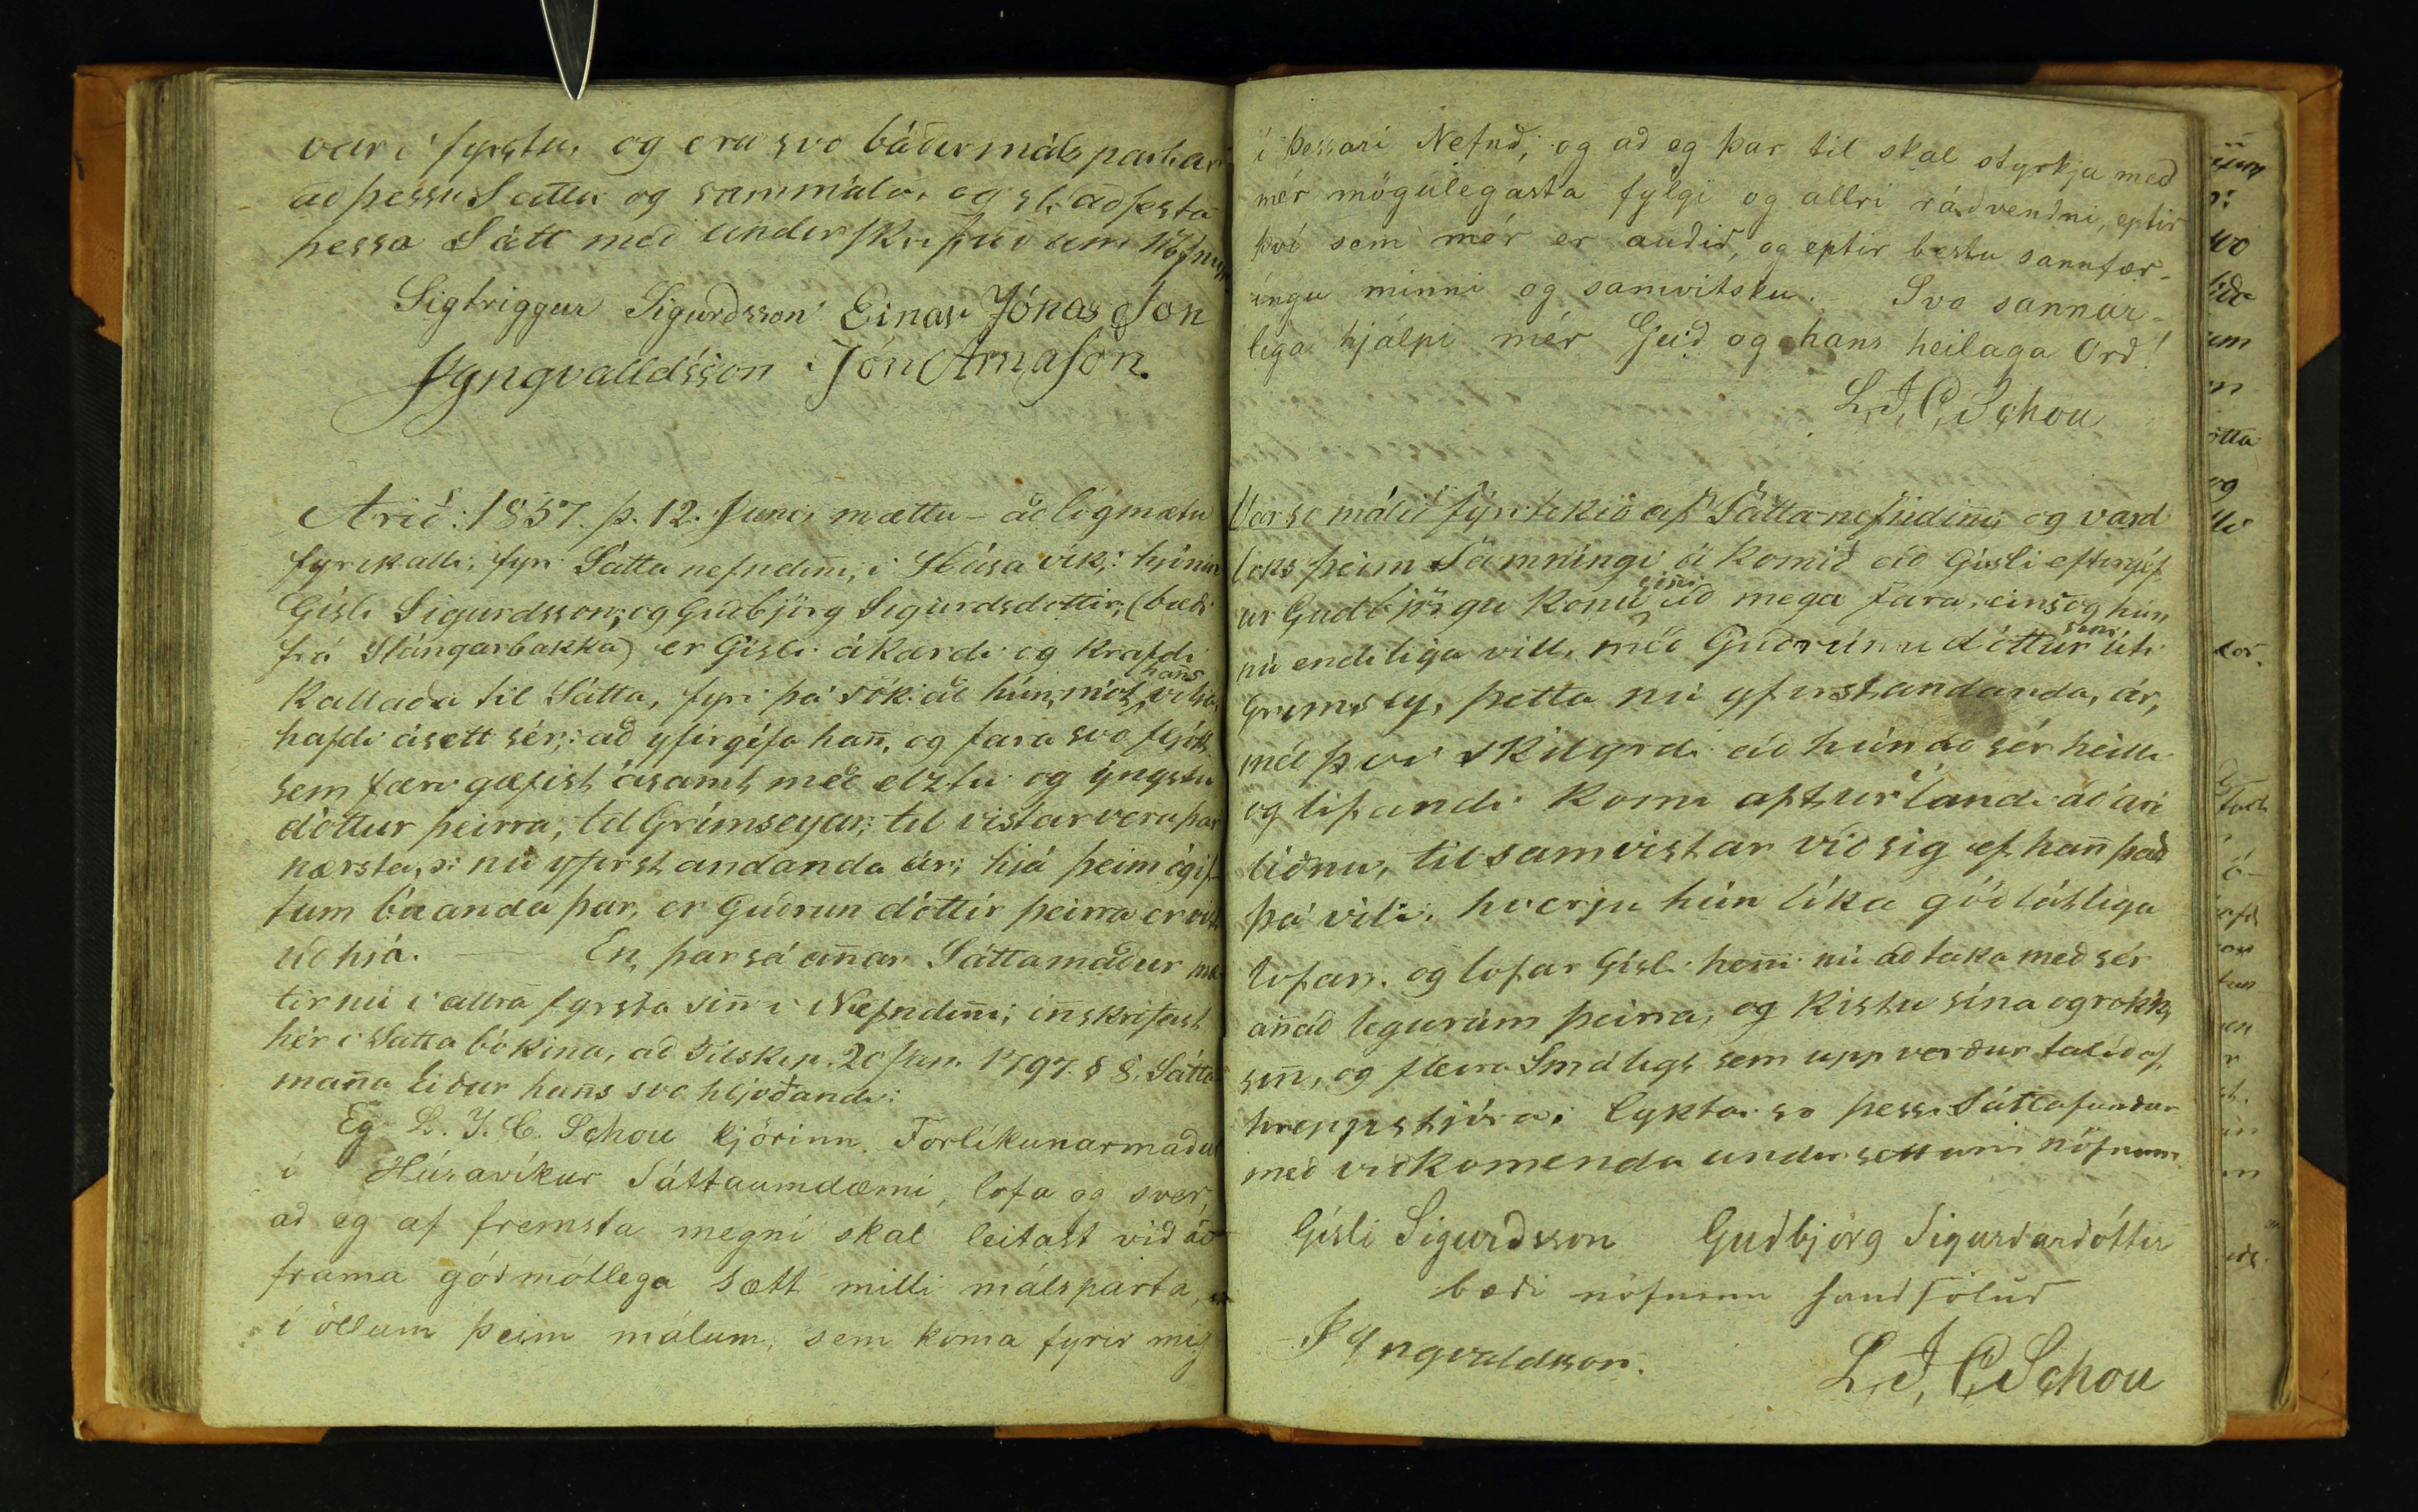 var í fyrstu, og eru svo báðir máls partar
að þessu Sáttir og sammála, og st. aðfesta
þessa Sátt með underskrifuðum Nöfnum.
Sigtriggur Sigurðsson Einar Jónasson
JYngvalldsson Jón Arnason.
Arið: 1857. þ. 12. Juni, mættu - að lögmætu
fyrikalli, fyri Sátta nefndinni, í Húsavík; hjónin
Gisli Sigurdsson, og Guðbjörg Sigurdsdottir, (bæði
frá Stángarbakka) er Gisli ákærdi og krafdi
kallaða til Sátta, fyri þá sök: að hún, mót hans vilja,
hafdi ásett sér; að yfirgéfa hañ, og fara svo fljótt
sem færi gæfist ásamt með elztu og ýngstu
dóttur þeirra, til Grímseyar; til vistarveru þar
næsta, ɔ: nú yfirstandanda ár; hjá þeim ógif-
tum búanda þar, er Guðrun dóttir þeirra er vist
uð hjá. En, þar sá añar Sáttamaður mæ-
tir nú í allra fyrsta siñ í Nefndiñi; iñskrifast
hér í Sátta bókina, að Tilskip. 20 Jan. 1797. § 8. Sátta
maña Eiður hañs svo hljóðandi:
Eg L. J. C. Schou kjörinn Forlíkunarmaður
í Húsavíkur Sáttaumdæmi, lofa og sver,
að eg af fremsta megni skal leitast við að
frama góðmótlega sætt milli málsparta,
í öllum þeim málum, sem koma fyrir mig
í þessari Nefnd, og að eg þar til skal styrkja með
mér mögulegasta fylgi og allri ráðvendni, eptir
því sem mér er auðið, og eptir bestu sannfær-
ingu minni og samvitsku. - Svo sannar-
lega hjálpi mér Guð og hans heilaga Orð!
L. J. C. Schou
Var so málið fyrirtekið af Sátta-nefndiñi og varð
loks þeim Samningi á komið að Gísli eftirgéf
ur Guðbjörgu konu siñi að mega fara, eins og hún
nú endiliga vill, með Guðrúnu dóttur sini úti
Grimsey, þetta nú yfirstandanda, ár,
með því skilyrdi að hún að sér heilli
og lifandi komi aftur í land að ári
liðnu, til samvistar við sig ef hañ það
þá vili, hverju hún líka góðlátliga
lofar. og lofar Gísli heñi nú að taka með sér
añað legurúm þeirra, og kistu sína og rokk
siñ, og fleira Smáligt sem upp verður talið af
hreppstjóra; lyktar so þessi Sáttafundur
með viðkomenda undirsettum nöfnum
Gísli Sigurðsson Guðbjörg Sigurðardóttir
bæði nöfninn handsöluð
JYngvaldsson. L. J. C. Schou